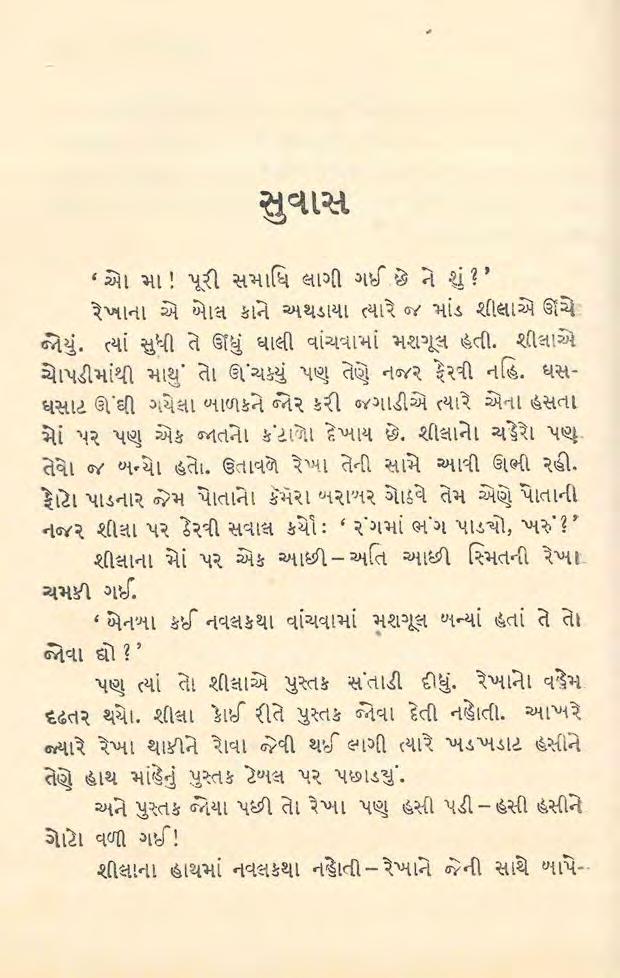 સુવાસ
‘ઓ મા! પૂરી સમાધિ લાગી ગઈ છે ને શું?’
રેખાના એ બોલ કાને અથડાયા ત્યારે જ માંડ શીલાએ ઊંચે
જોયું. ત્યાં સુધી તે ઊંધું ઘાલી વાંચવામાં મશગૂલ હતી. શીલાએ
ચોપડીમાંથી માથું તો ઊંચક્યું પણ તેણે નજર ફેરવી નહિ. ઘસ-
ઘસાટ ઊંઘી ગયેલા બાળકને જોર કરી જગાડીએ ત્યારે એના હસતા
મોં પર પણ એક જાતનો કંટાળો દેખાય છે. શીલાનો ચહેરો પણ
તેવો જ બન્યો હતો. ઉતાવળે રેખા તેની સામે આવી ઊભી રહી.
ફોટો પાડનાર જેમ પોતાનો કૅમૅરા બરાબર ગોઠવે તેમ એણે પોતાની
નજર શીલા પર ઠેરવી સવાલ કર્યો: ‘રંગમાં ભંગ પાડ્યો, ખરું?’
શીલાના મોં પર એક આછી–અતિ આછી સ્મિતની રેખા
ચમકી ગઈ.
‘બેનબા કઈ નવલકથા વાંચવામાં મશગૂલ બન્યાં હતાં તે તો
જોવા દ્યો?’
પણ ત્યાં તો શીલાએ પુસ્તક સંતાડી દીધું. રેખાનો વહેમ
દૃઢતર થયો. શીલા કોઈ રીતે પુસ્તક જોવા દેતી નહોતી. આખરે
જ્યારે રેખા થાકીને રોવા જેવી થઈ લાગી ત્યારે ખડખડાટ હસીને
તેણે હાથ માંહેનું પુસ્તક ટેબલ પર પછાડ્યું.
અને પુસ્તક જોયા પછી તો રેખા પણ હસી પડી–હસી હસીને
ગોટો વળી ગઈ!
શીલાના હાથમાં નવલકથા નહોતી–રેખાને જેની સાથે બાપે-